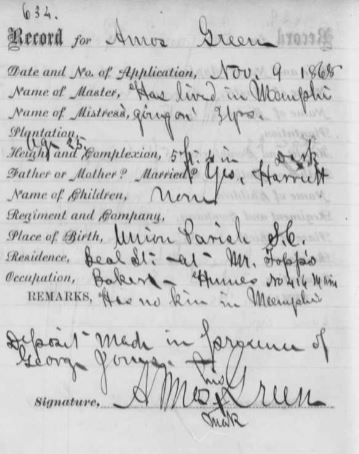 634.
Record for Amos Green
Date and No. of Application, Nov. 9 1868
Name of Master, Has lived in Memphis
Name of Mistress, going on 3 yrs.
Plantation,
Age 25
Height and Complexion, 5 ft in dark
Father or Mother? Married? Yes, Harriett
Name of Children, None
Regiment and Company,
Place of Birth, Union Parish
Residence, Beal St at Mr. Topps
Occupation, Baker No 414 Main
REMARKS, Has no kin in Memphis
Deposit made in presence of
George
his
Signature, Amos Green
mark